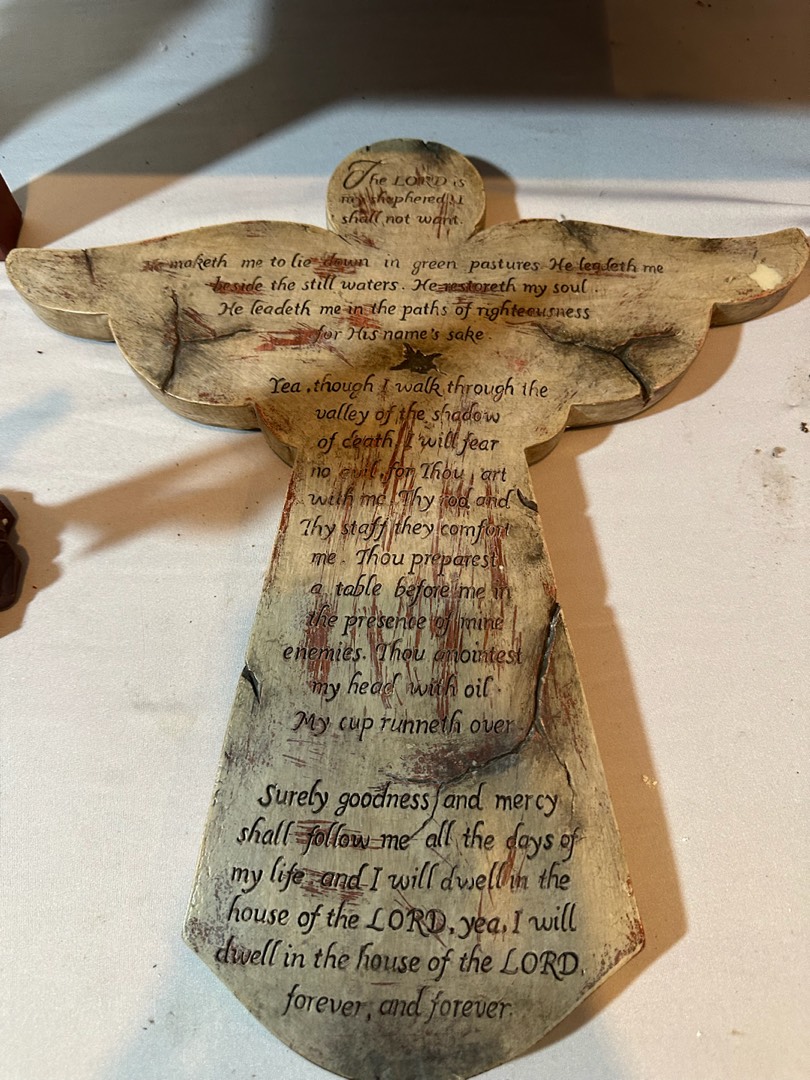 The LORD is
my shephered I
shall not want.
He maketh me to lie down in green pastures. He leadeth me
beside the still waters. He restoreth my soul.
He leadeth me in the paths of righteousness
for His name's sake.
Yea, though I walk through the
valley of the shadow
of death, I will fear
no evil, for Thou art
with me. Thy rod and
Thy staff they comfort
me. Thou preparest
a table before me in
the presence of mine
enemies. Thou anointest
my head with oil.
My cup runneth over.
Surely goodness and mercy
shall follow me all the days of
my life, and I will dwell in the
house of the LORD, yea, I will
dwell in the house of the LORD,
forever, and forever.